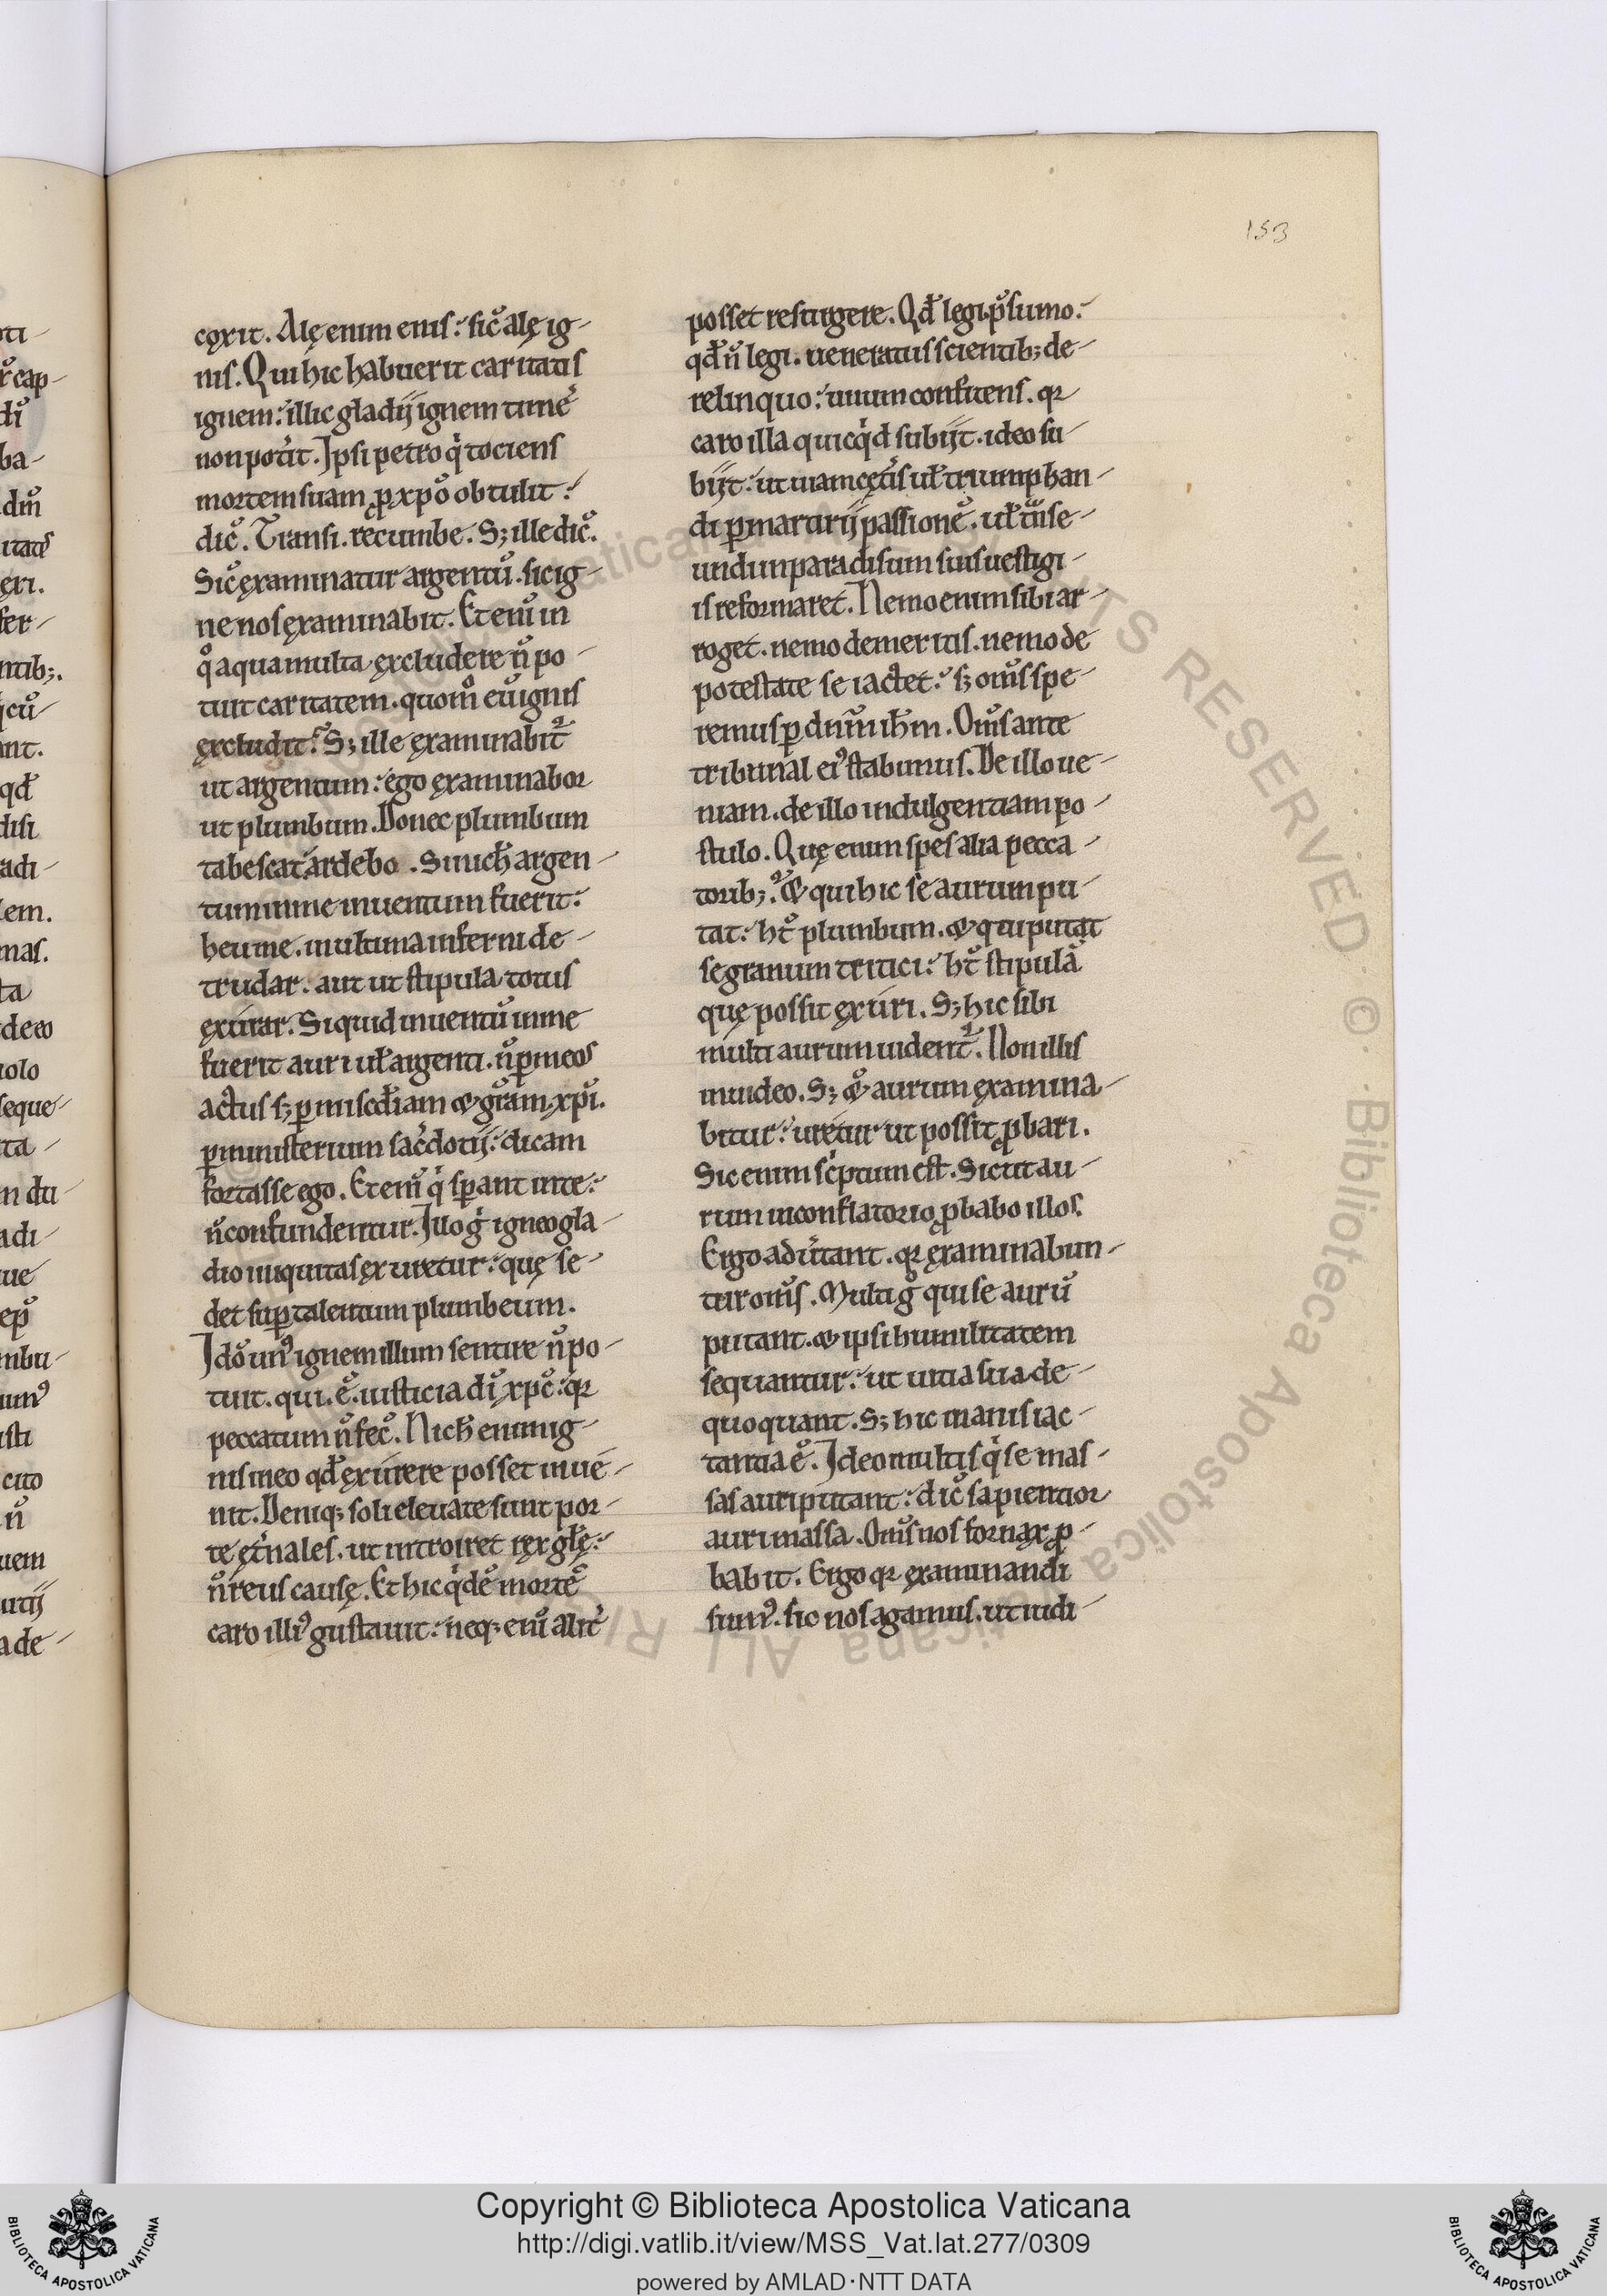 153
cęxit. Alę enim eius: sic̄ alę ig-
nis. Qui hic habuerit caritatis
ignem: illic gladij ignem timē
non pot̄it. Ipsi petro q̍ tociens
mortem suam ꝓ xp̄o obtulit:
dic̄. Transi. recumbe. S; ille dic̄.
Sic̄ ęxaminatur argentū. sic ig-
ne nos ęxaminabit. Et enī in
q̊ aqua multa ęxcludere n̄ po-
tuit caritatem. quom̄ eū ignis
ęxcludit? S; ille ęxaminabit᷑
ut argentum: ego ęxaminabor
ut plumbum. Donec plumbum
tabescat ardebo. Si nich̄ argen-
tum in me inuentum fuerit:
heu me. in ultima inferni de-
trudar. aut ut stipula totus
ęxurar. Si quid inuentū in me
fuerit auri ul̄ argenti. n̄ ꝑ meos
actus s; ꝑ misc̄diam ⁊ gr̄am xp̄i.
ꝑ ministerium sac̄dotij: dicam
fortasse ego. Et enī q̍ sꝑant in te:
n̄ confundentur. Illo g̍ igneo gla-
dio iniquitas ęxuretur: quę se-
det suꝑ talentum plumbeum.
Idō un᷒ ignem illum sentire n̄ po-
tuit. qui. ē. iusticia dī xp̄c: qꝛ
peccatum n̄ fec̄. Nich̄ enim ig-
nis in eo qd̄ ęxurere posset inue-
nit. Deniq; soli eleuate sunt por-
te ęt̄nales. ut introiret ręx gl̄ę:
n̄ reus causę. Et hic q̍dē mortē
caro illi᷒ gustauit: neq; enī alit̄
posset restingere. Qd̄ legi p̄sumo:
qd̄ n̄ legi. ueneratus scientib; de-
relinquo: unum confitens. qꝛ
caro illa quicq̍d subijt. ideo su-
bijt: ut uiam cęt̄is ul̄ triumphan-
di ꝑ martirij passionē. ul̄ t̄nse-
undi in paradisum suis uestigi-
is reformaret. Nemo enim sibi ar-
roget. nemo de meritis. nemo de
potestate se iactet: s; om̄s spe-
remus ꝑ dn̄m ih̄m. Om̄s ante
tribunal ei᷒ stabimus. De illo ue-
niam. de illo indulgentiam po-
stulo. Quę enim spes alia pecca-
torib;? ⁊ qui hic se aurum pu-
tat: ht̄ plumbum. ⁊ qui putat
se granum tritici: ht̄ stipulā
quę possit ęxuri. S; hic sibi
multi aurum uident᷑. Non illis
inuideo. S; ⁊ aurum ęxamina-
bitur: uretur ut possit ꝓbari.
Sic enim sc̍ptum est. Sicut au-
rum in conflatorio ꝓbabo illos.
Ergo adūtant. qꝛ ęxaminabun-
tur om̄s. Multi g̊ qui se aurū
putant. ⁊ ipsi humilitatem
sequantur: ut uitia sua de-
quoquant. S; hic inanis iac-
tantia ē. Ideo multis q̍ se mas-
sas auri putant: dic̄ sapientior
auri massa. Om̄s nos fornax ꝓ-
babit. Ergo qꝛ ęxaminandi
sum᷒. sic nos agamus. ut iudi-
Copyright © Biblioteca Apostolica Vaticana
http://digi.vatlib.it/view/MSS_Vat.lat.277/0309
powered by AMLAD·NTT DATA